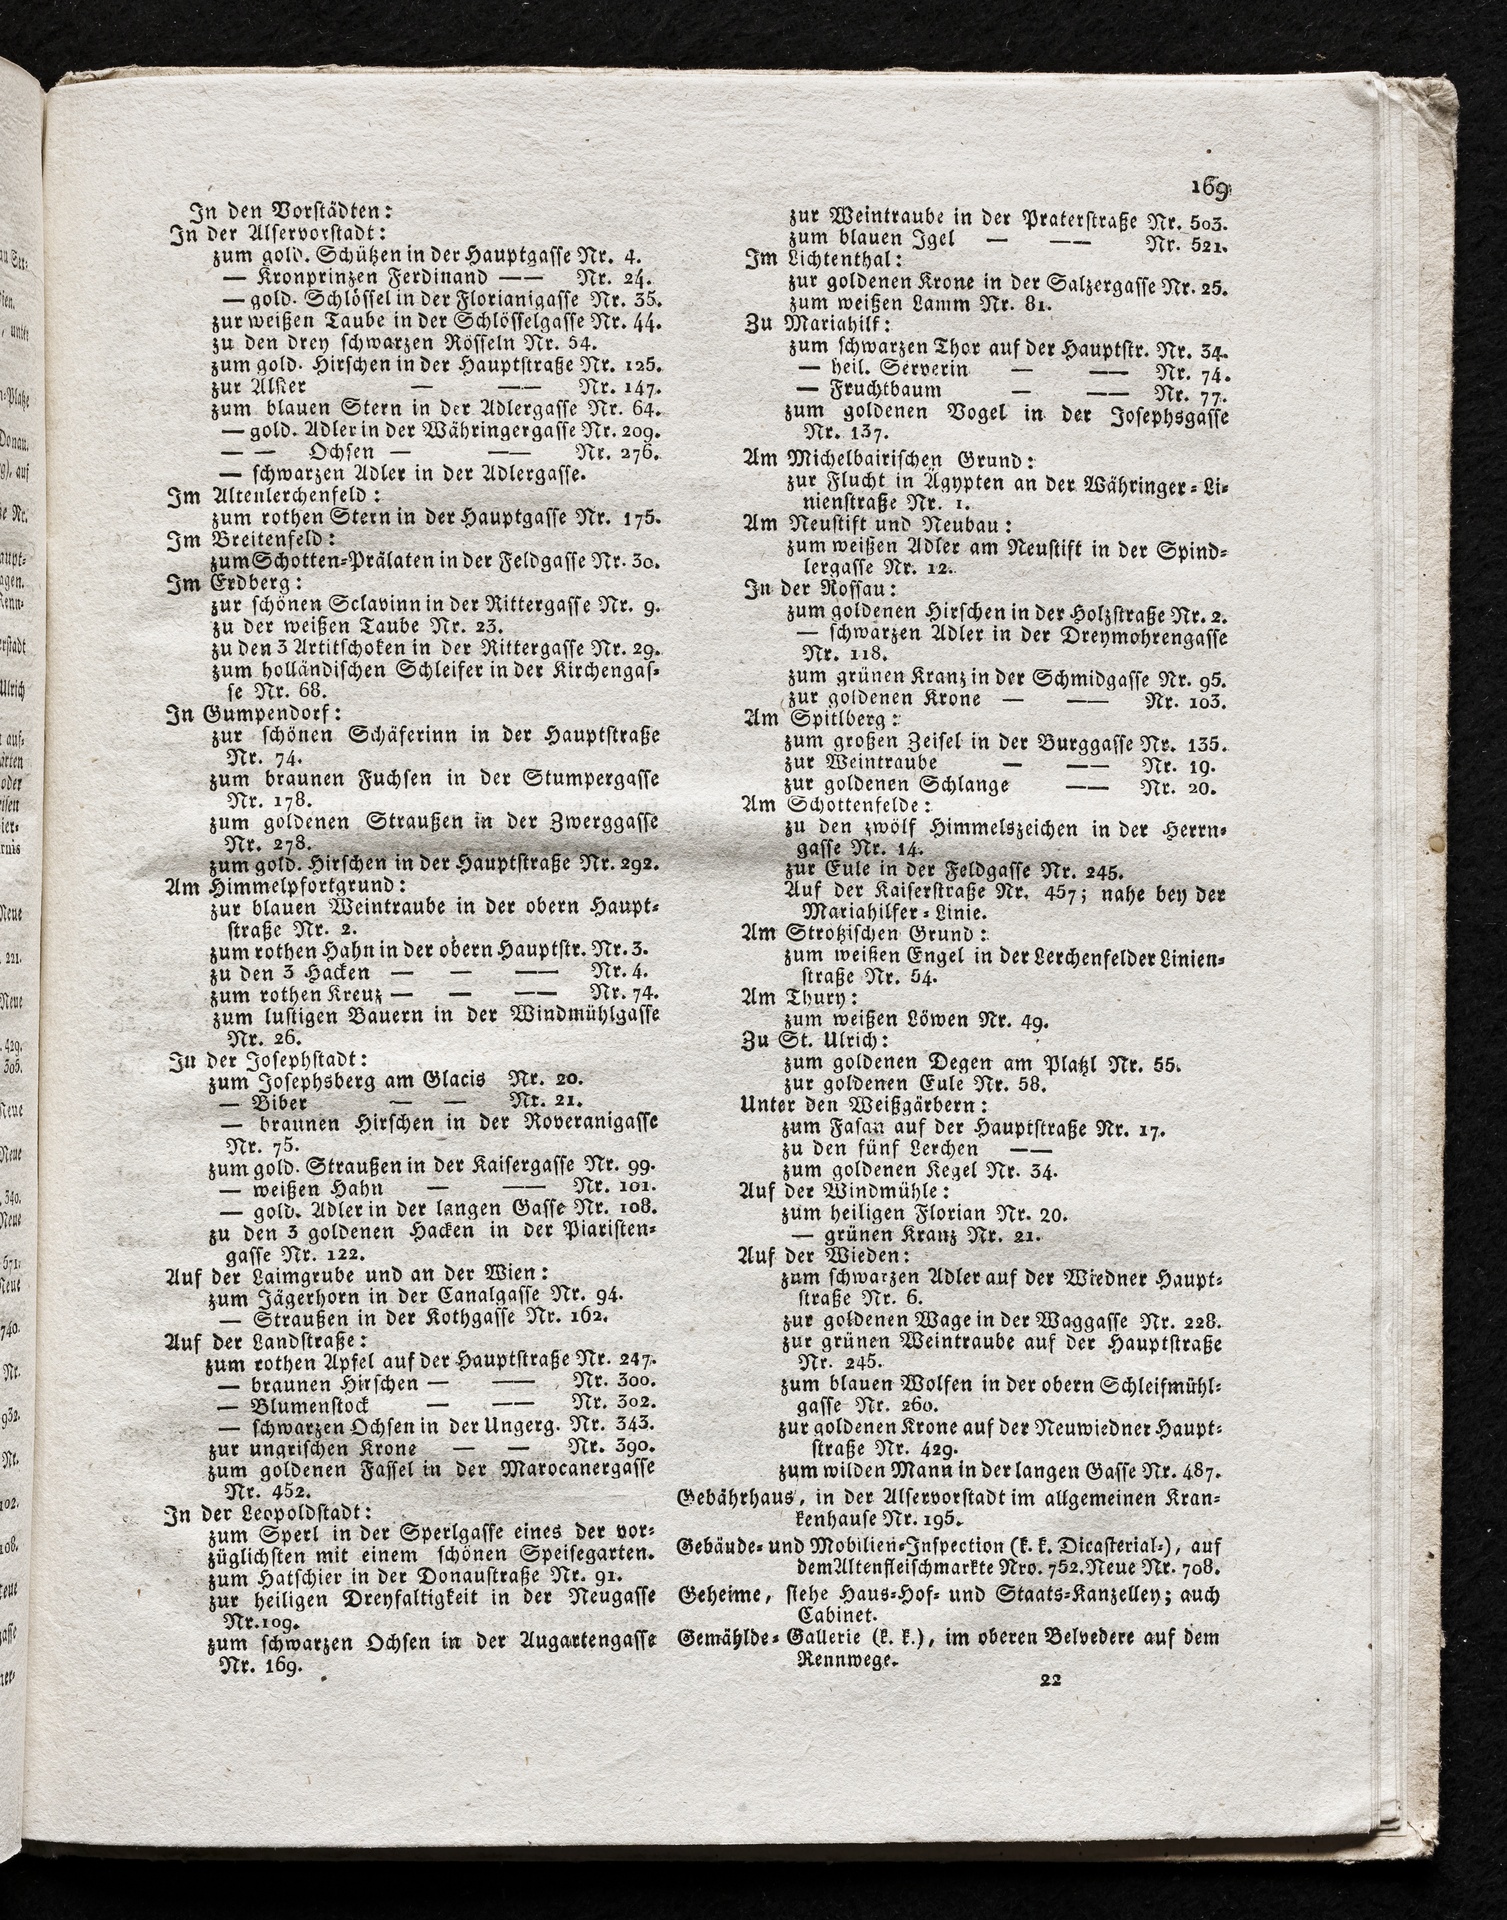 169
In den Vorstädten:
In der Alservorstadt:
zum gold. Schützen in der Hauptgasse Nr. 4.
— Kronprinzen Ferdinand —— Nr. 24.
— gold. Schlössel in der Florianigasse Nr. 35.
zur weißen Taube in der Schlösselgasse Nr. 44.
zu den drey schwarzen Rösseln Nr. 54.
zum gold. Hirschen in der Hauptstraße Nr. 125.
zur Alster — —— Nr. 147.
zum blauen Stern in der Adlergasse Nr. 64.
— gold. Adler in der Währingergasse Nr. 209.
— — Ochsen — —— Nr. 276.
— schwarzen Adler in der Adlergasse.
Im Altenlerchenfeld:
zum rothen Stern in der Hauptgasse Nr. 175.
Im Breitenfeld:
zum Schotten-Prälaten in der Feldgasse Nr. 30.
Im Erdberg:
zur schönen Sclavinn in der Rittergasse Nr. 9.
zu der weißen Taube Nr. 23.
zu den 3 Artitschoken in der Rittergasse Nr. 29.
zum holländischen Schleifer in der Kirchengas-
se Nr. 68.
In Gumpendorf:
zur schönen Schäferinn in der Hauptstraße
Nr. 74.
zum braunen Fuchsen in der Stumpergasse
Nr. 178.
zum goldenen Straußen in der Zwerggasse
Nr. 278.
zum gold. Hirschen in der Hauptstraße Nr. 292.
Am Himmelpfortgrund:
zur blauen Weintraube in der obern Haupt-
straße Nr. 2.
zum rothen Hahn in der obern Hauptstr. Nr. 3.
zu den 3 Hacken — — —— Nr. 4.
zum rothen Kreuz — — —— Nr. 74.
zum lustigen Bauern in der Windmühlgasse
Nr. 26.
In der Josephstadt:
zum Josephsberg am Glacis Nr. 20.
— Biber — — Nr. 21.
— braunen Hirschen in der Roveranigasse
Nr. 75.
zum gold. Straußen in der Kaisergasse Nr. 99.
— weißen Hahn — —— Nr. 101.
— gold. Adler in der langen Gasse Nr. 108.
zu den 3 goldenen Hacken in der Piaristen-
gasse Nr. 122.
Auf der Laimgrube und an der Wien:
zum Jägerhorn in der Canalgasse Nr. 94.
— Straußen in der Kothgasse Nr. 162.
Auf der Landstraße:
zum rothen Apfel auf der Hauptstraße Nr. 247.
— braunen Hirschen — —— Nr. 300.
— Blumenstock — —— Nr. 302.
— schwarzen Ochsen in der Ungerg. Nr. 343.
zur ungrischen Krone — — Nr. 390.
zum goldenen Fassel in der Marocanergasse
Nr. 452.
In der Leopoldstadt:
zum Sperl in der Sperlgasse eines der vor-
züglichsten mit einem schönen Speisegarten.
zum Hatschier in der Donaustraße Nr. 91.
zur heiligen Dreyfaltigkeit in der Neugasse
Nr. 109.
zum schwarzen Ochsen in der Augartengasse
Nr. 169.
zur Weintraube in der Praterstraße Nr. 503.
zum blauen Igel — —— Nr. 521.
Im Lichtenthal:
zur goldenen Krone in der Salzergasse Nr. 25.
zum weißen Lamm Nr. 81.
Zu Mariahilf:
zum schwarzen Thor auf der Hauptstr. Nr. 34.
— heil. Serverin — —— Nr. 74.
— Fruchtbaum — —— Nr. 77.
zum goldenen Vogel in der Josephsgasse
Nr. 137.
Am Michelbairischen Grund:
zur Flucht in Ägypten an der Währinger-Li-
nienstraße Nr. 1.
Am Neustift und Neubau:
zum weißen Adler am Neustift in der Spind-
lergasse Nr. 12.
In der Rossau:
zum goldenen Hirschen in der Holzstraße Nr. 2.
— schwarzen Adler in der Dreymohrengasse
Nr. 118.
zum grünen Kranz in der Schmidgasse Nr. 95.
zur goldenen Krone — —— Nr. 103.
Am Spitlberg:
zum großen Zeisel in der Burggasse Nr. 135.
zur Weintraube — —— Nr. 19.
zur goldenen Schlange —— Nr. 20.
Am Schottenfelde:
zu den zwölf Himmelszeichen in der Herrn-
gasse Nr. 14.
zur Eule in der Feldgasse Nr. 245.
Auf der Kaiserstraße Nr. 457; nahe bey der
Mariahilfer-Linie.
Am Strotzischen Grund:
zum weißen Engel in der Lerchenfelder Linien-
straße Nr. 54.
Am Thury:
zum weißen Löwen Nr. 49.
Zu St. Ulrich:
zum goldenen Degen am Platzl Nr. 55.
zur goldenen Eule Nr. 58.
Unter den Weißgärbern:
zum Fasan auf der Hauptstraße Nr. 17.
zu den fünf Lerchen ——
zum goldenen Kegel Nr. 34.
Auf der Windmühle:
zum heiligen Florian Nr. 20.
— grünen Kranz Nr. 21.
Auf der Wieden:
zum schwarzen Adler auf der Wiedner Haupt-
straße Nr. 6.
zur goldenen Wage in der Waggasse Nr. 228.
zur grünen Weintraube auf der Hauptstraße
Nr. 245.
zum blauen Wolfen in der obern Schleifmühl-
gasse Nr. 260.
zur goldenen Krone auf der Neuwiedner Haupt-
straße Nr. 429.
zum wilden Mann in der langen Gasse Nr. 487.
Gebährhaus, in der Alservorstadt im allgemeinen Kran-
kenhause Nr. 195.
Gebäude- und Mobilien-Inspection (k. k. Dicasterial-), auf
dem Altenfleischmarkte Nro. 752. Neue Nr. 708.
Geheime, siehe Haus-Hof- und Staats-Kanzelley; auch
Cabinet.
Gemählde-Gallerie (k. k.), im oberen Belvedere auf dem
Rennwege.
22